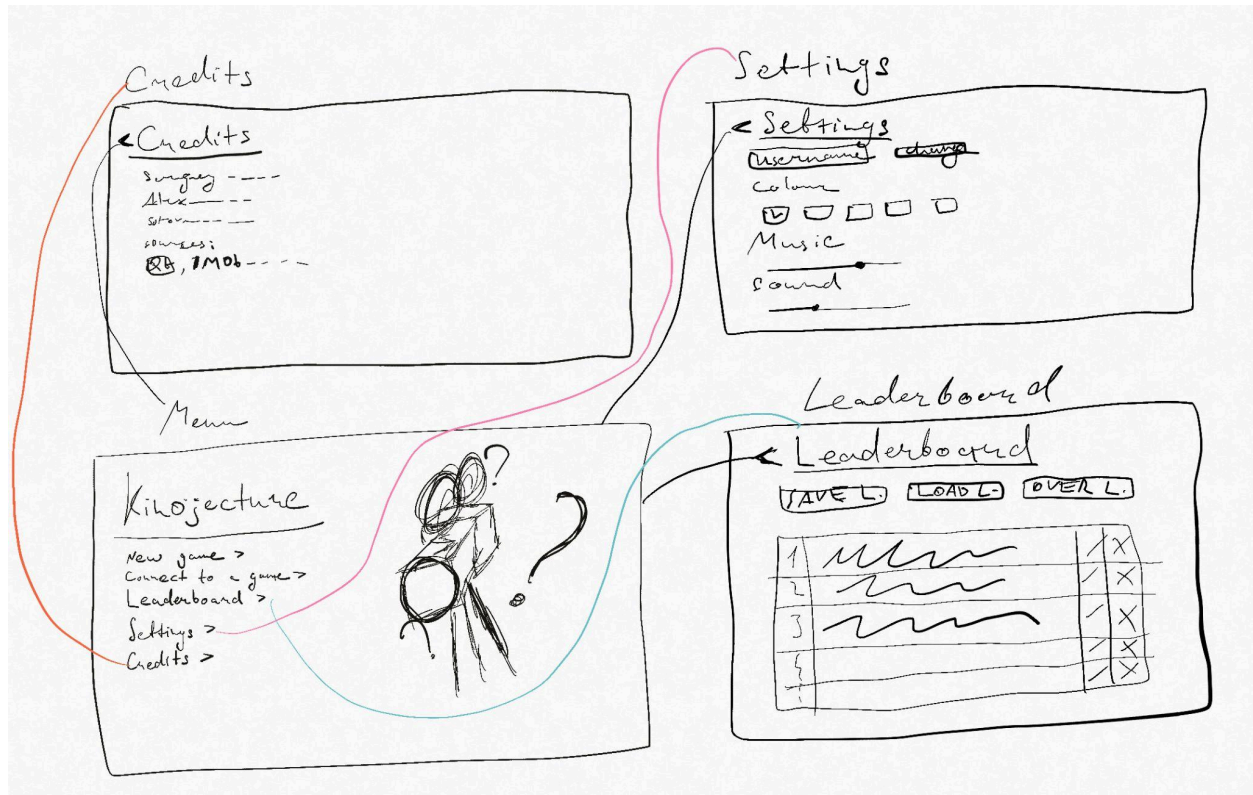 Credits
< Credits
Alex
sources:
Qt, IMDb
Settings
< Settings
username change
Colour
Music
Sound
Menu
Kinojecture
New game >
Connect to a game >
Leaderboard >
Settings >
Credits >
? ? ?
Leaderboard
< Leaderboard
SAVE L. LOAD L. OVER L.
1 / X
2 / X
3 / X
/ X
/ X